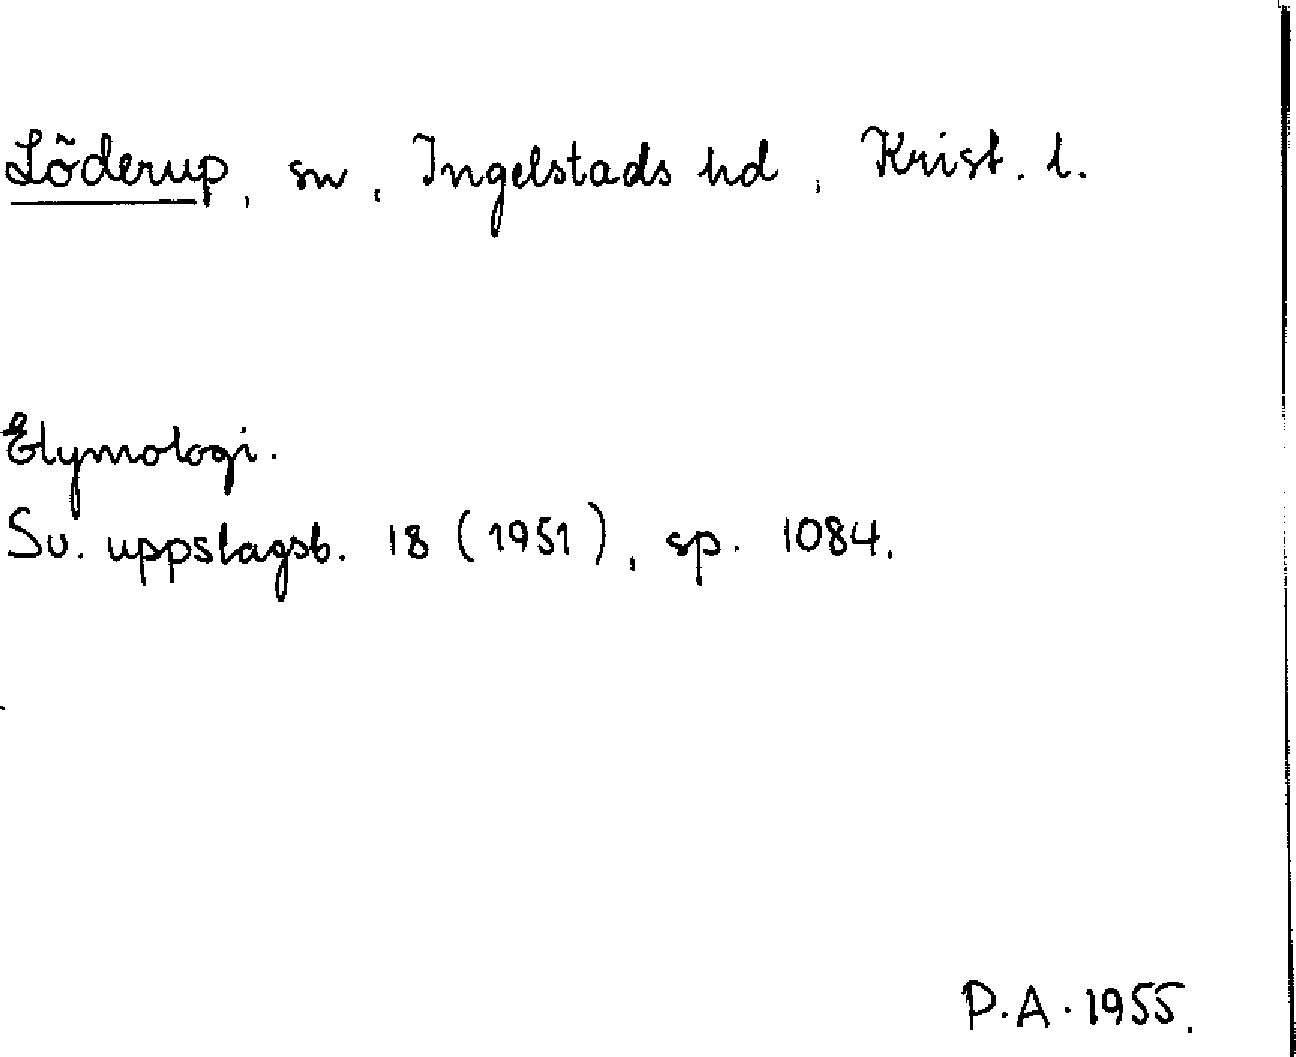 Löderup, sn, Ingelstads hd, Krist. l.
Etymologi.
Sv. uppslagsb. 18 (1951), sp. 1084.
P.A. 1955.